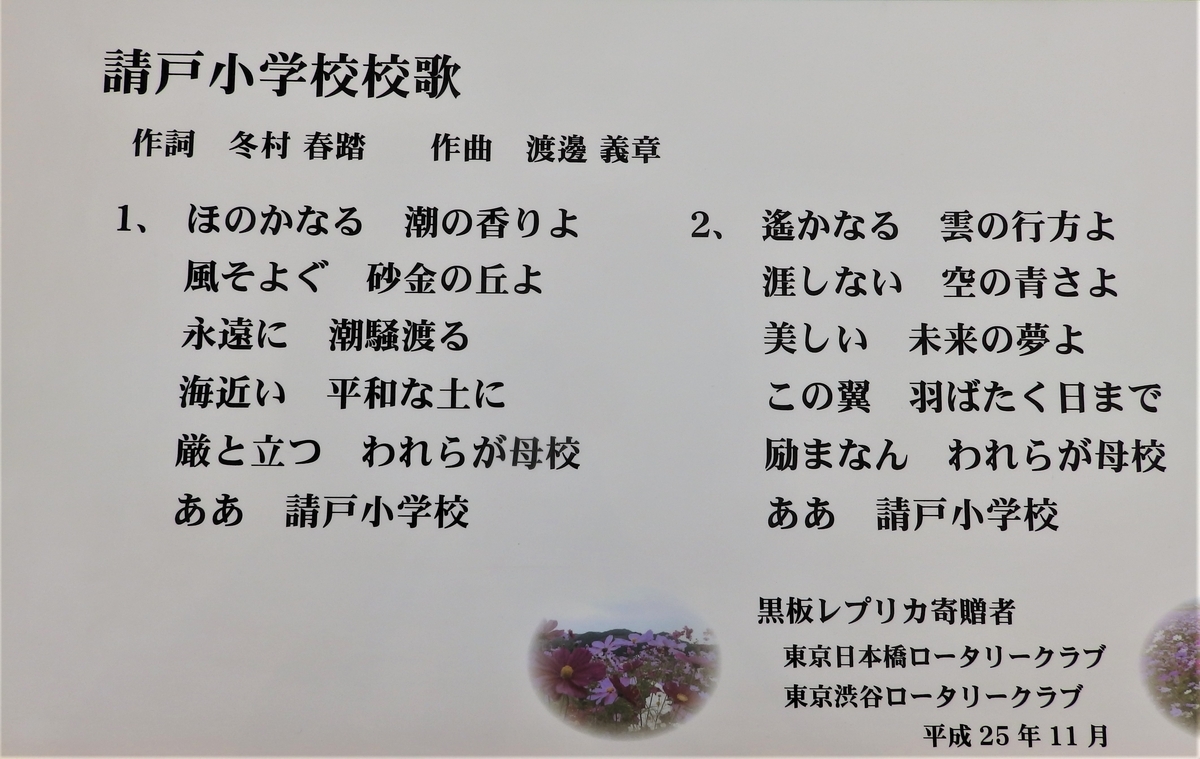 請戸小学校校歌
作詞　冬村 春踏　　作曲　渡邊 義章
1、　ほのかなる　潮の香りよ
風そよぐ　砂金の丘よ
永遠に　潮騒渡る
海近い　平和な土に
厳と立つ　われらが母校
ああ　請戸小学校
2、　遙かなる　雲の行方よ
涯しない　空の青さよ
美しい　未来の夢よ
この翼　羽ばたく日まで
励まなん　われらが母校
ああ　請戸小学校
黒板レプリカ寄贈者
東京日本橋ロータリークラブ
東京渋谷ロータリークラブ
平成 25 年 11 月